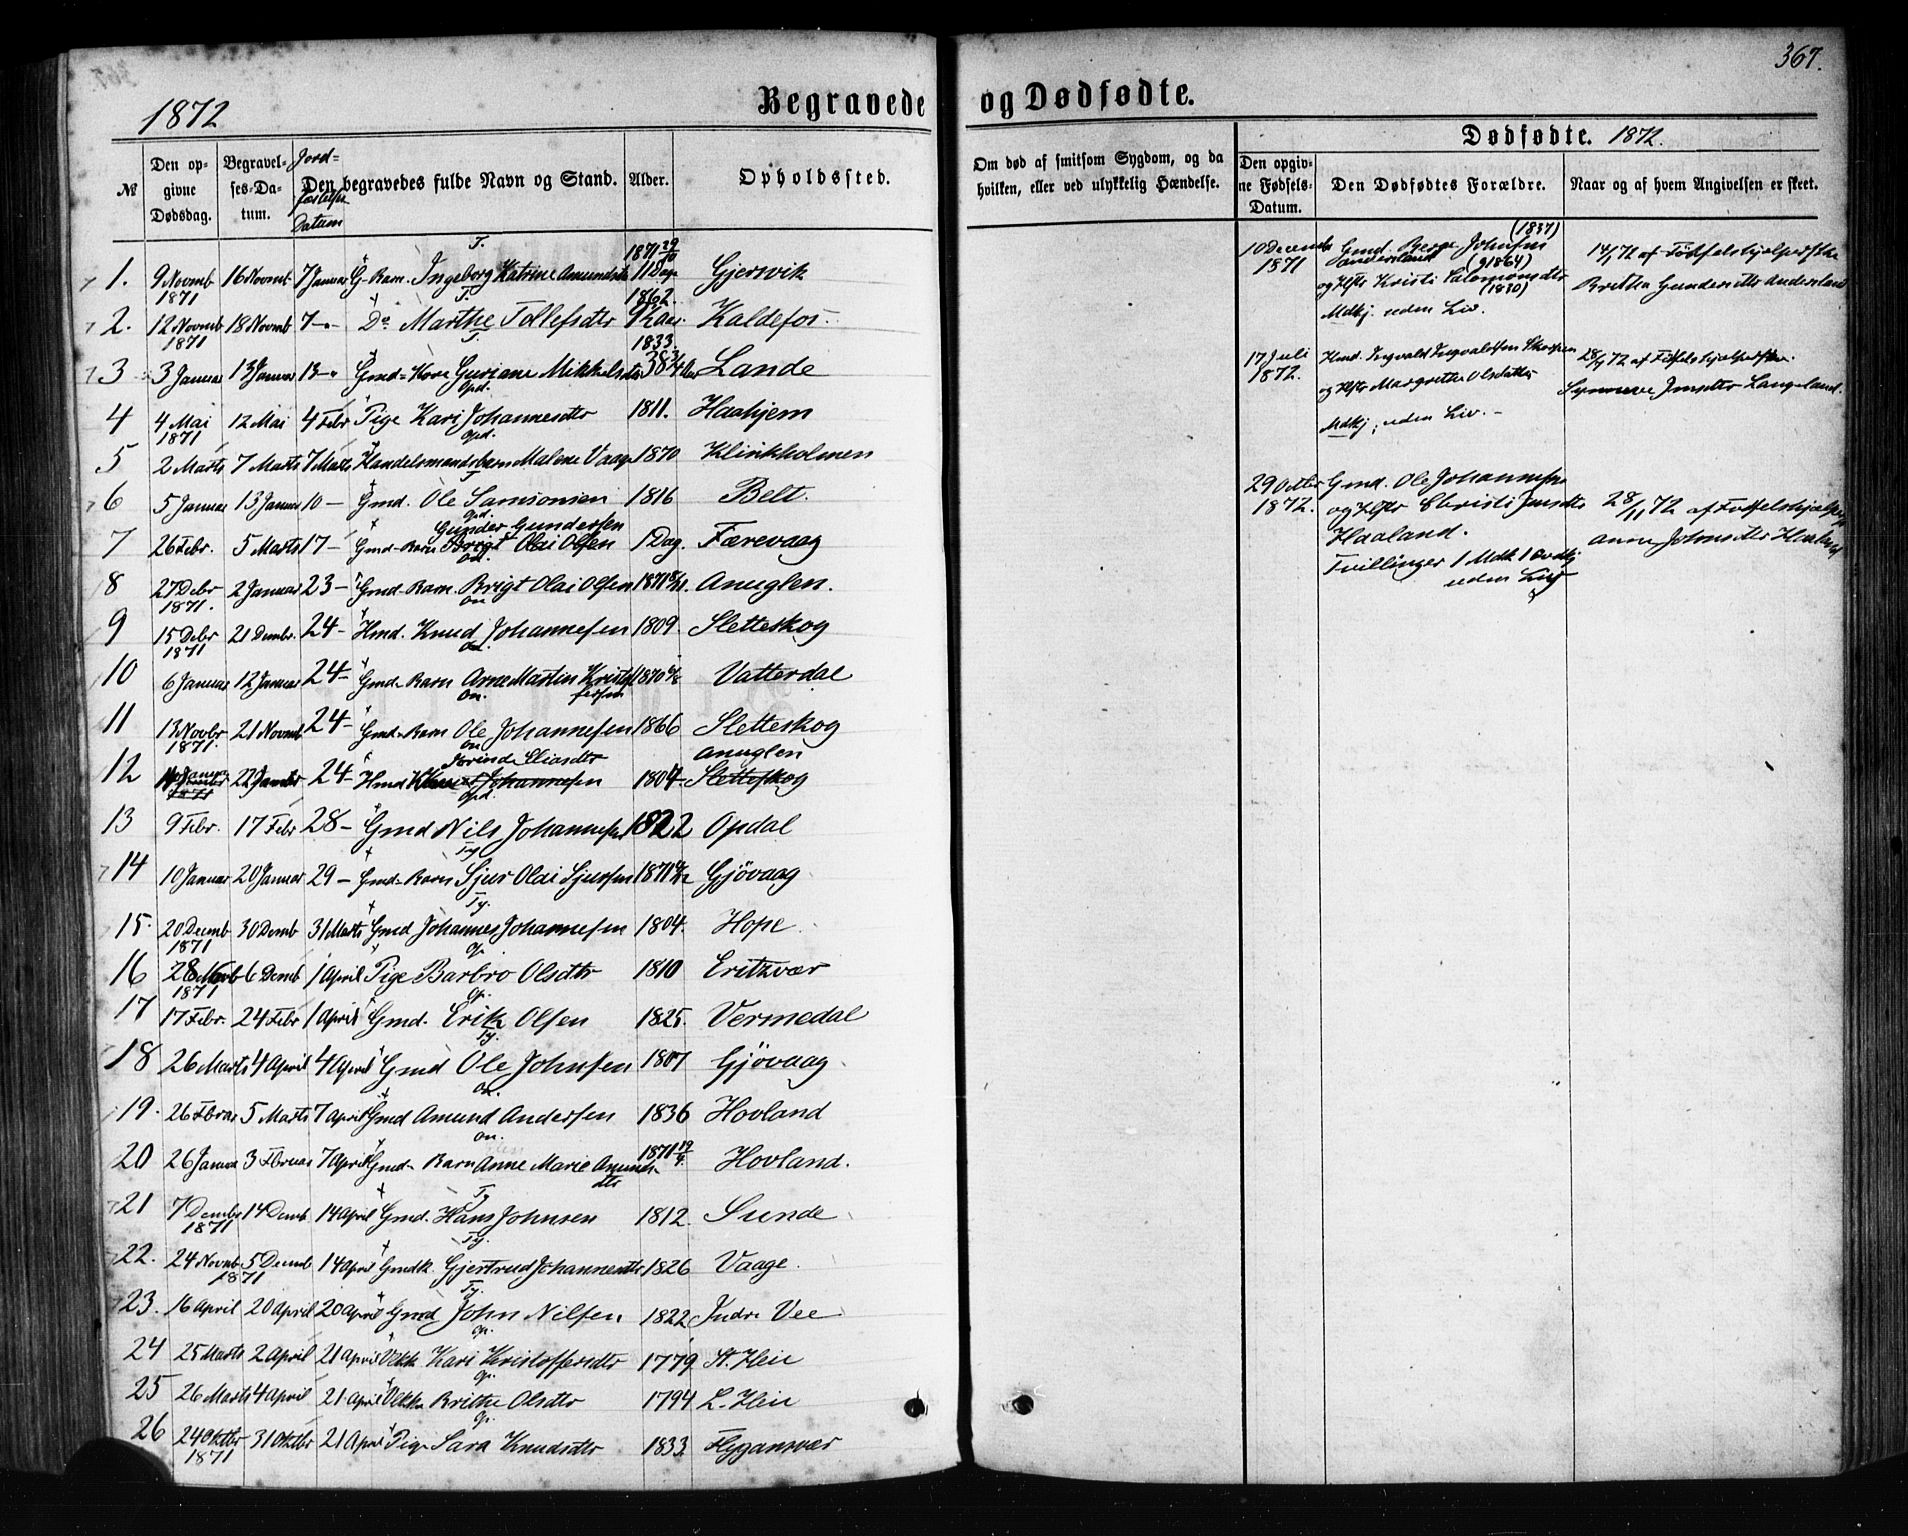 367.
1872
Begravede og Dødfødte.
Dødfødte. 1872.
№ Den opgivne Dødsdag. Begravelses-Datum. Jordfæstelse Datum Den begravedes fulde Navn og Stand. Alder. Opholdssted.
Om død af smitsom Sygdom, og da hvilken, eller ved ulykkelig Hændelse.
Den opgivne Fødsels-Datum. Den Dødfødtes Forældre. Naar og af hvem Angivelsen er skeet.
1. 9 Novmb 1871 16 Novmb 7 Januar G. Barn Ingeborg Katrine Amundsdtr 1871 29/10 11 Dage Gjersvik
2. 12 Novmb 1871 18 Novmb 7 - Do Marthe Tollefsdtr 1862. 9 Kaldefos
3 3 Januar 13 Januar 13 - Gmd-Kone Guriane Mikkelsdtr 1833. 38 3/4 Lande
4 4 Mai 1871 12 Mai 4 Febr Pige Kari Johannesdtr 1811. Haahjem
5 2 Marts 7 Marts 7 Marts Handelsmandsbarn Malene Vaage 1870 Klinkholmen
6 5 Januar 13 Januar 10 - Gmd. Ole Samsonsen 1816 Belt.
7 26 Febr. 5 Marts 17 - Gmd-Barn Gunder Gundersen Brigt Olai Olsen 1 Dag. Færevaag
8 27 Debr 1871. 2 Januar 23 - Gmd-Barn Brigt Olai Olsen 1871 Anuglen.
9 15 Debr 1871 21 Dembr. 24 - Hmd. Knud Johannesen 1809. Sletteskog
10 6 Januar 12 Januar 24 - Gmd-Barn Arne Martin Kristoffersen 1870 Vatterdal
11 13 Novbr 1871. 21 Novmb 24 - Gmd-Barn Ole Johannesen 1866 Sletteskog
12 Januar 1871 22 Januar 24 - Hmd K Eliasdtr Johannesen 1804 Anuglen Sletteskog
13 9 Febr. 17 Febr 28 - Gmd Nils Johannesen 1822 Opdal
14 10 Januar 20 Januar 29 - Gmd-Barn Sjur Olai Sjursen 1871 Gjøvaag
15. 20 Decemb 1871 30 Demb 31 Marts Gmd Johannes Johannesen 1804. Hope
16 28 Novb 1871 6 Demb 1 April Pige Barbro Olsdtr 1810 Eritzvær
17 17 Febr. 24 Febr 1 April Gmd. Erik Olsen 1825. Vermedal
18 26 Marts 4 April 4 April Gmd Ole Johnsen 1807 Gjøvaag
19. 26 Februar 5 Marts 7 April Gmd Amund Andersen 1836 Hovland
20 26 Januar 3 Februar 7 April Gmd-Barn Anne Marie Amundsdtr 1871 19/4. Hovland.
21 7 Dembr 1871 14 Demb 14 April Gmd. Hans Johnsen 1812. Sunde
22. 24 Novmb 1871 5 Decmb 14 April Gmdk. Gjertrud Johannesdtr 1826 Vaage.
23. 16 April 20 April 20 April Gmd John Nilsen 1822 Indre Vee
24 25 Marts 2 April 21 April Kari Kristoffersdtr 1779 St. Heie
25 26 Marts 4 April 21 April Brithe Olsdtr 1794 L. Heie
26 24 Oktbr 1871 31 Oktbr 21 April Pige Sara Knudsdtr 1833 Flygansvær
10 Decemb 1871 Gmd. Berge Johnsen (1837) Andersland (91864) og Hstr Kristi Salomonsdtr (1830) Mdkj. uden Liv.
14/1 72 af Fødselshjælperske Britha Gundersdtr Andersland
17 Juli 1872. Hmd. Ingvald Ingvaldsen Skorpen og Hstr Margrethe Olsdatter Mdkj, uden Liv. -
28/7 72 af Fødselshjælperske Synneve Jonsdtr Langeland.
29 Octbr 1872. Gmd. Ole Johannesen og Hstr Christi Jonsdtr Haaland. Tvillinger 1 Mdk 1 Qvdkj uden Liv
28/11 72 af Fødselshjælperske Anne Johnsdtr Haaland